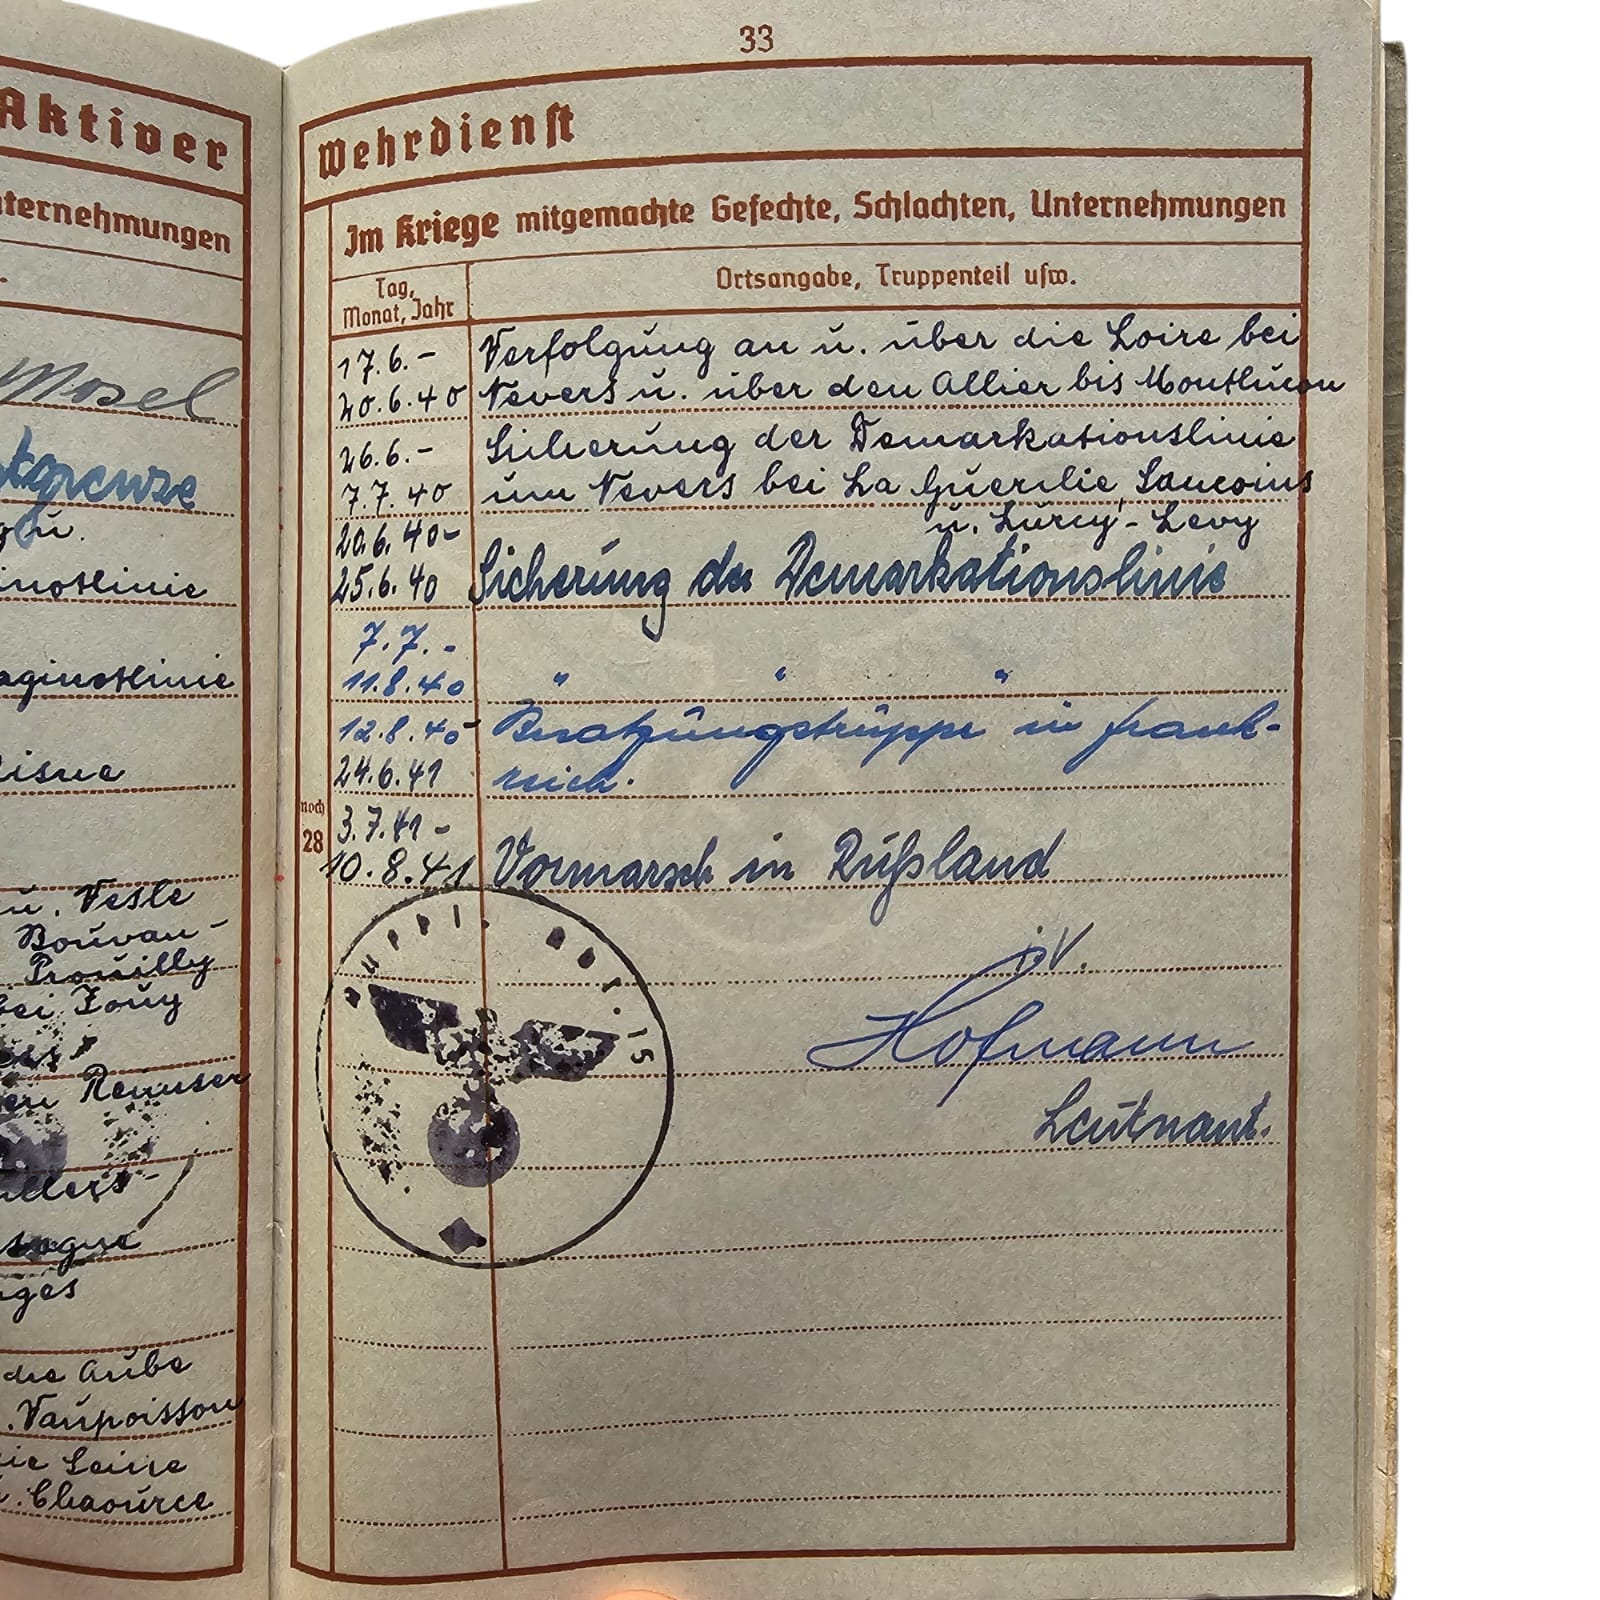 Aktiver
nternehmungen
Mosel
grenze
u.
inotlinie
aginotlinie
Aisne
u. Vesle
Bouvan-
Prouilly
bei Jouy
den Reimser
die Aube
Vaupoisson
die Seine
u. Chaource
33
Wehrdienst
Im Kriege mitgemachte Gefechte, Schlachten, Unternehmungen
Tag,
Monat, Jahr
Ortsangabe, Truppenteil usw.
17.6.- Verfolgung an u. über die Loire bei
20.6.40 Nevers u. über den Allier bis Montlucon
26.6.- Sicherung der Demarkationslinie
7.7.40 um Nevers bei La Guerche, Sancoins
u. Lurcy-Levy
20.6.40-
25.6.40 Sicherung der Demarkationslinie
7.7.-
11.8.40 " " "
12.8.40- Besatzungstruppe in Frank-
24.6.41 reich.
noch
28
3.7.41-
10.8.41 Vormarsch in Rußland
UPPL. ABT. 15
i.V.
Hofmann
Leutnant.